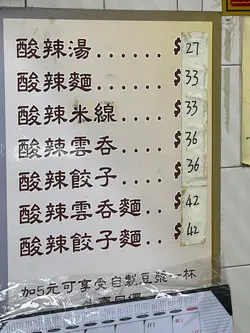 酸辣湯......$27
酸辣麵......$33
酸辣米線...$33
酸辣雲吞...$36
酸辣餃子...$36
酸辣雲吞麵..$42
酸辣餃子麵..$42
加5元可享受自製豆漿一杯